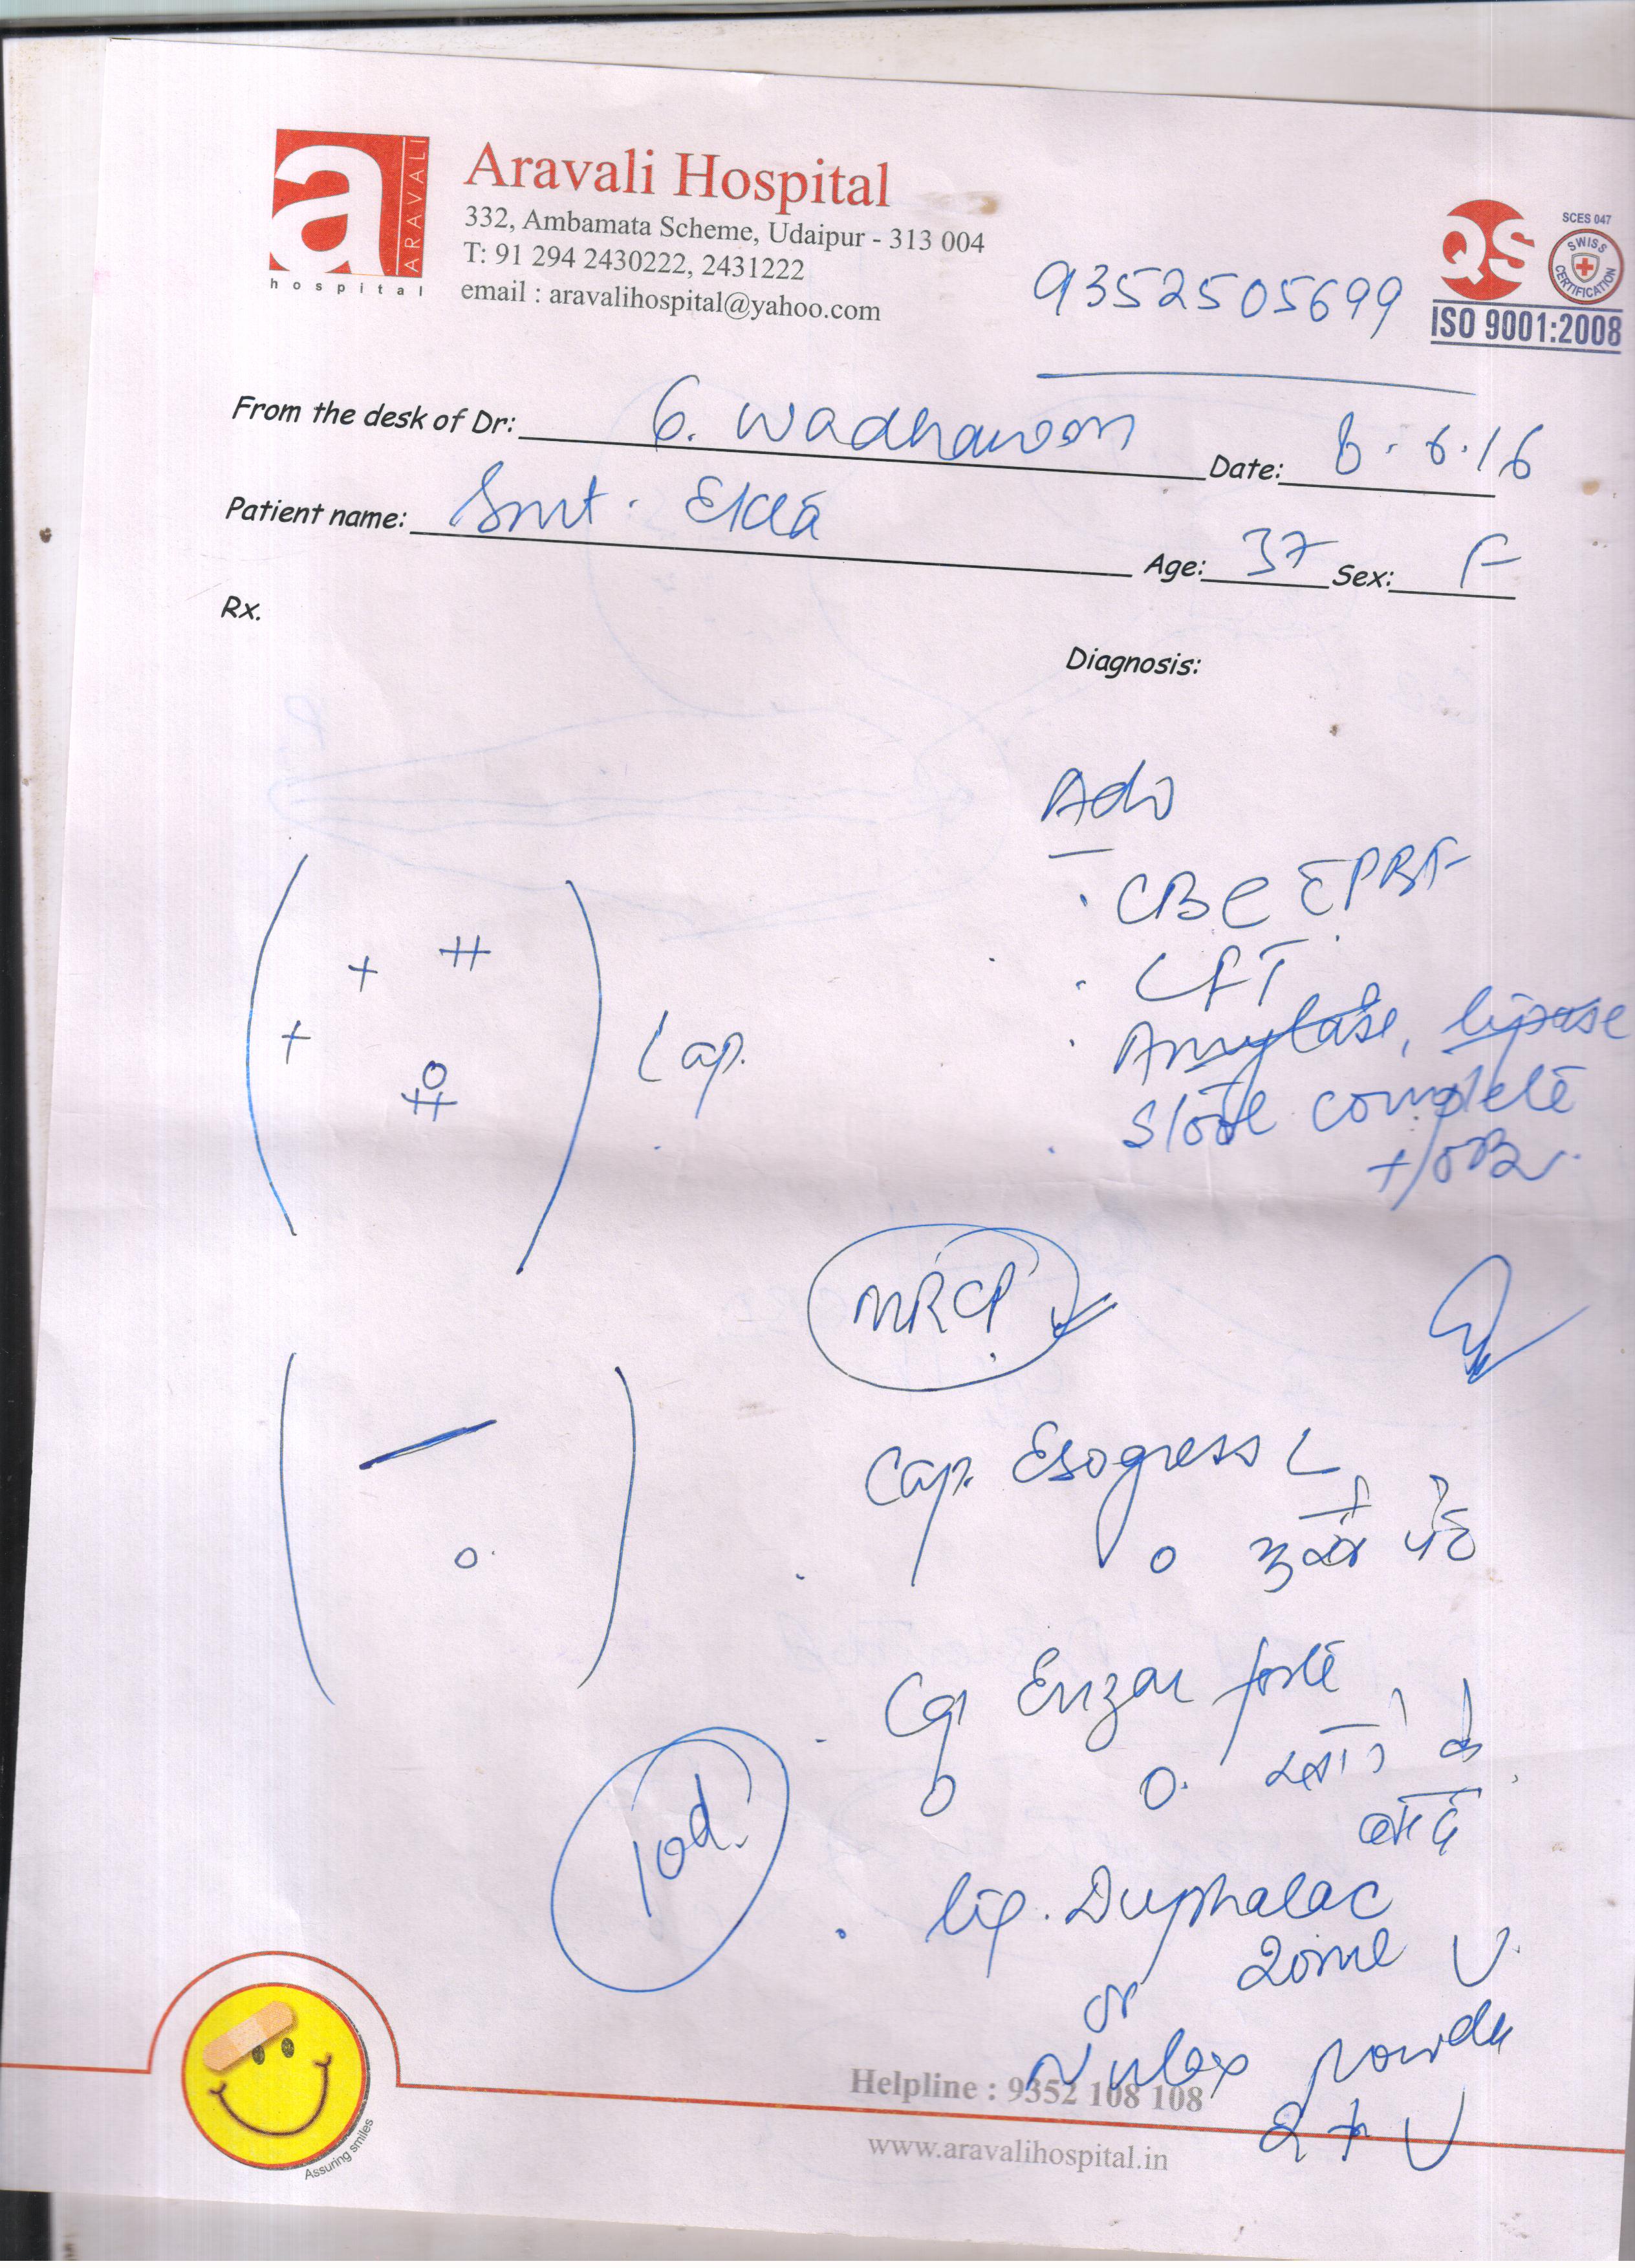 a ARAVALI
hospital
Aravali Hospital
332, Ambamata Scheme, Udaipur - 313 004
T: 91 294 2430222, 2431222
email : aravalihospital@yahoo.com
9352505699
QS
SCES 047
SWISS CERTIFICATION
ISO 9001:2008
From the desk of Dr: G. Wadhawan
Date: 8.6.16
Patient name: Smt. Ekta
Age: 37 Sex: F
Rx.
Diagnosis:
Adv
CBC c̄ PBF
LFT
Amylase, lipase
Stool complete
+/OB
+ ++
+
Lap.
MRCP
Cap. Esogress L
0
Cap Enzar forte
0 0
10d.
liq. Duphalac
20ml
or
powder
2
Helpline : 9352 108 108
www.aravalihospital.in
Assuring smiles